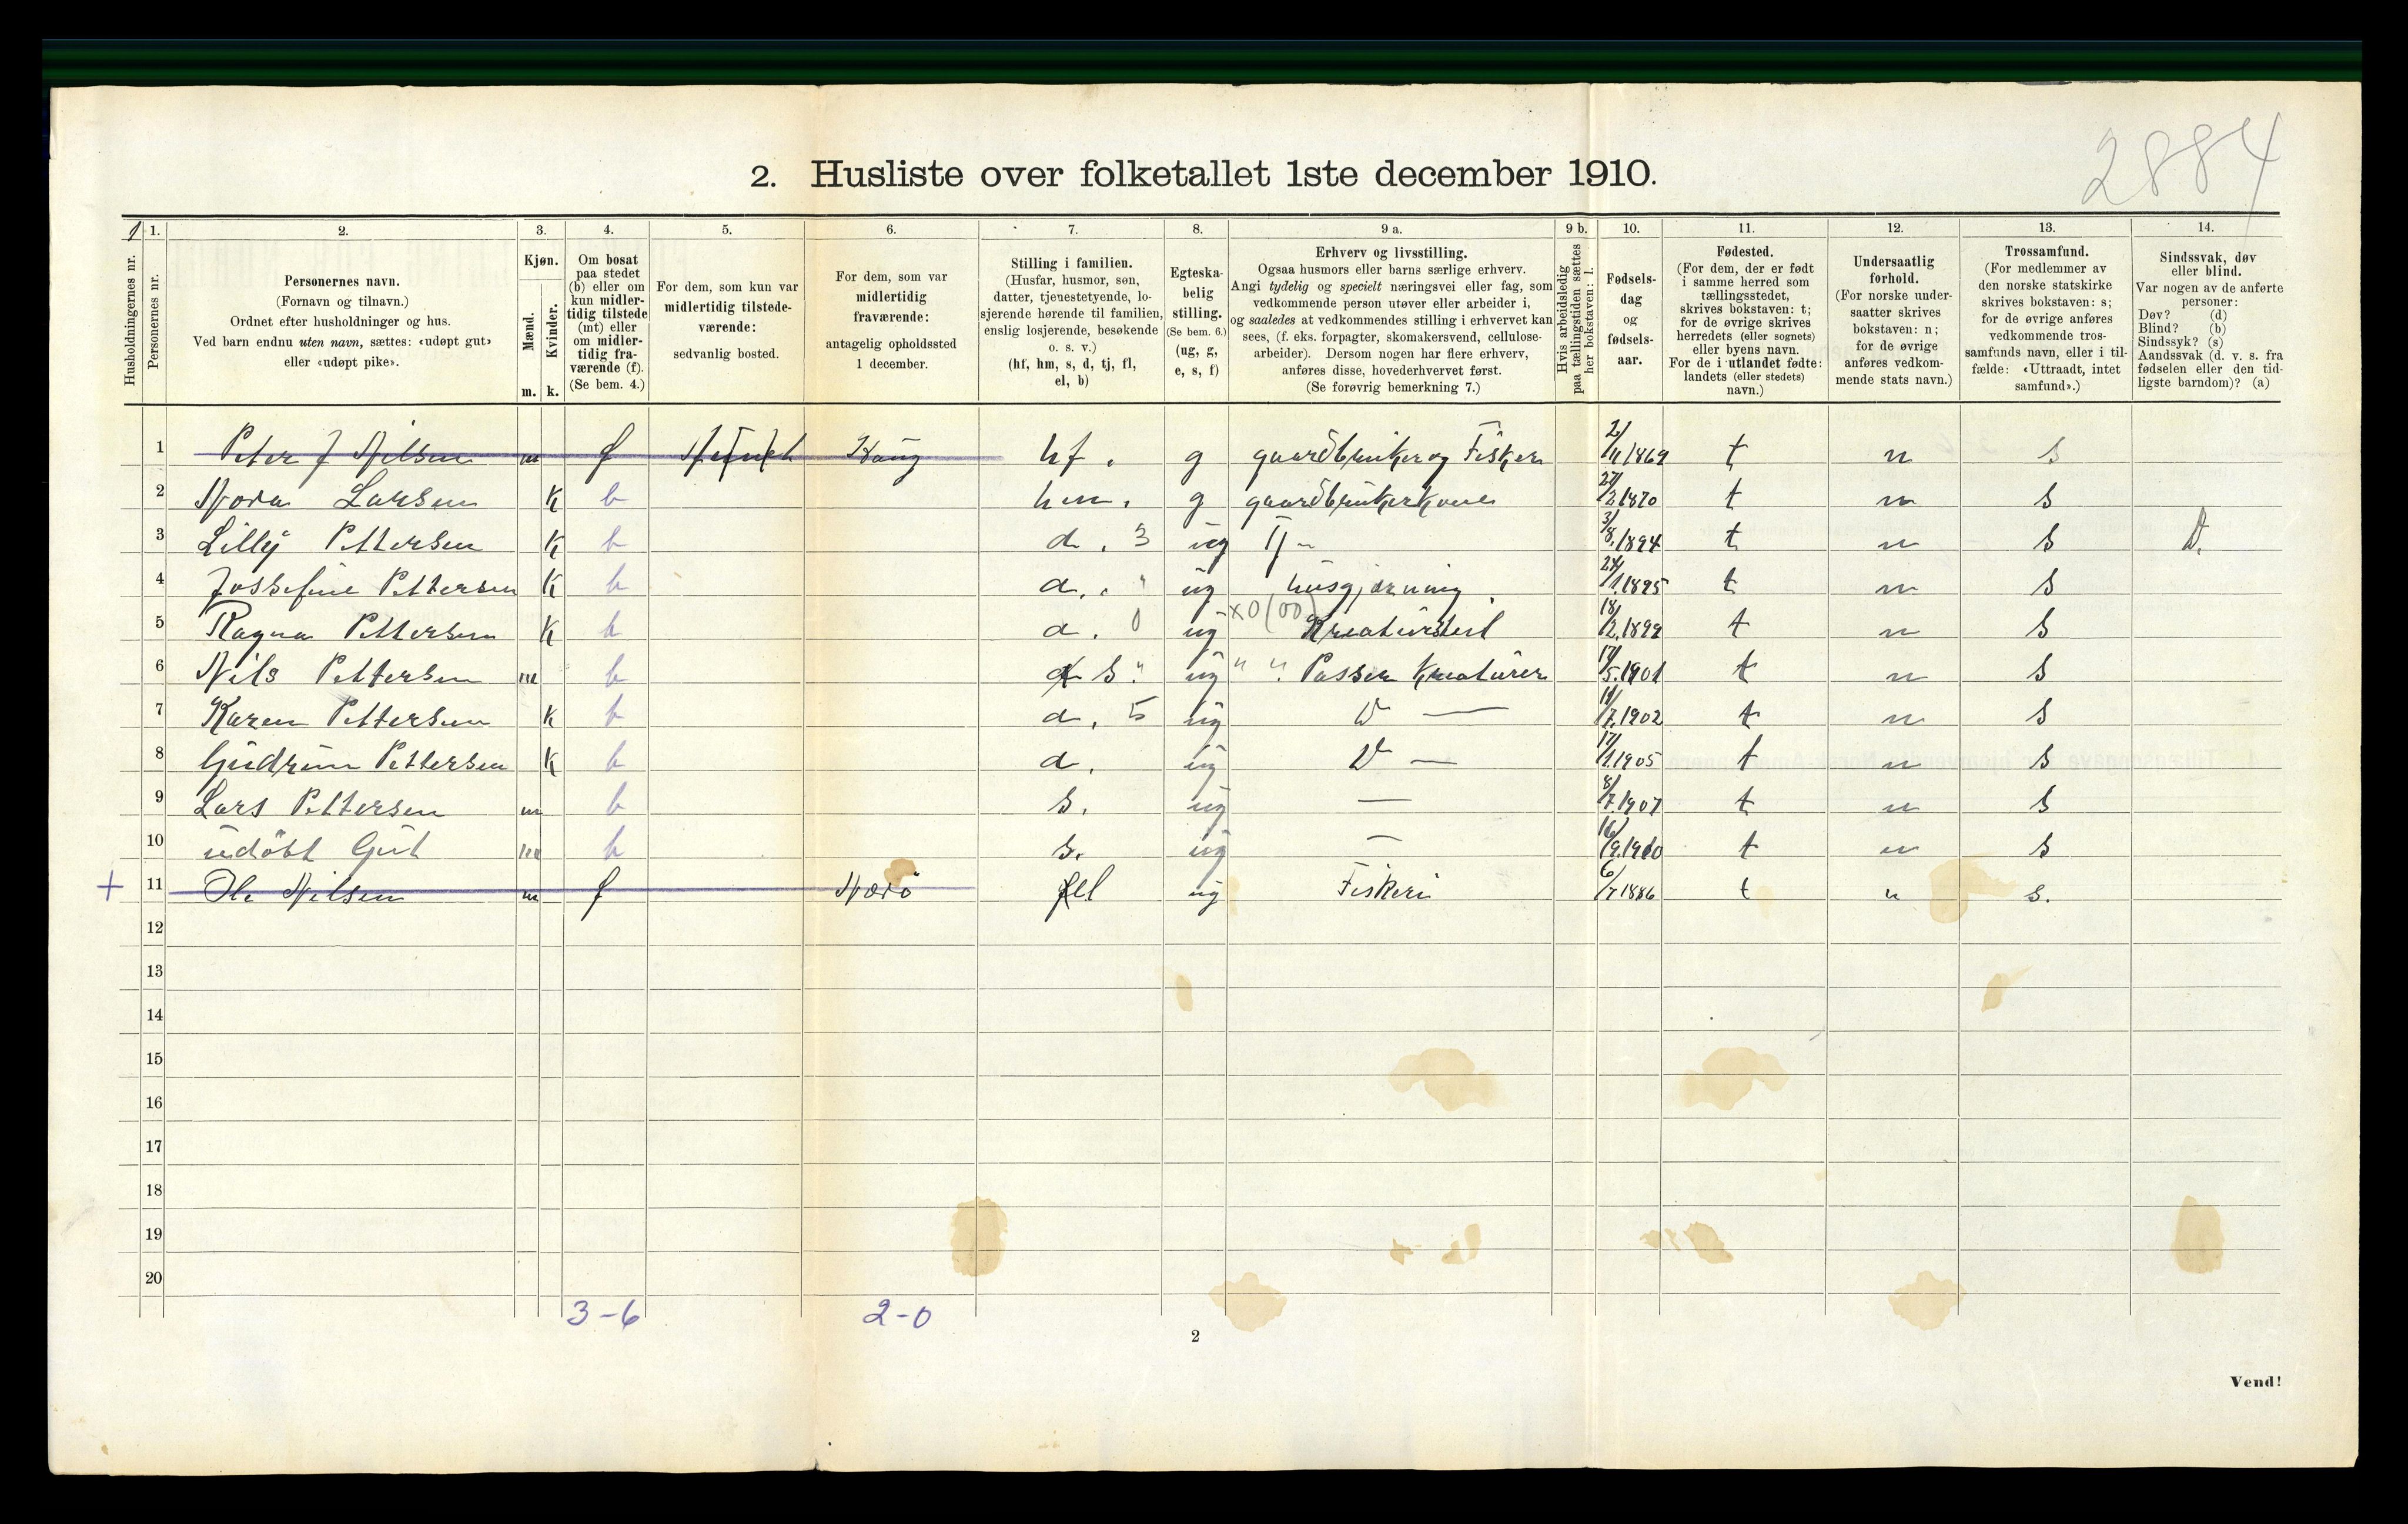 2884
2. Husliste over folketallet 1ste december 1910.
1
1. 2. 3. 4. 5. 6. 7. 8. 9 a. 9 b. 10. 11. 12. 13. 14.
Husholdningernes nr.
Personernes nr.
Personernes navn.
(Fornavn og tilnavn.)
Ordnet efter husholdninger og hus.
Ved barn endnu uten navn, sættes: «udøpt gut»
eller «udøpt pike».
Kjøn.
Mænd.
Kvinder.
m. k.
Om bosat
paa stedet
(b) eller om
kun midler-
tidig tilstede
(mt) eller
om midler-
tidig fra-
værende (f).
(Se bem. 4.)
For dem, som kun var
midlertidig tilstede-
værende:
sedvanlig bosted.
For dem, som var
midlertidig
fraværende:
antagelig opholdssted
1 december.
Stilling i familien.
(Husfar, husmor, søn,
datter, tjenestetyende, lo-
sjerende hørende til familien,
enslig losjerende, besøkende
o. s. v.)
(hf, hm, s, d, tj, fl,
el, b)
Egteska-
belig
stilling.
(Se bem. 6.)
(ug, g,
e, s, f)
Erhverv og livsstilling.
Ogsaa husmors eller barns særlige erhverv.
Angi tydelig og specielt næringsvei eller fag, som
vedkommende person utøver eller arbeider i,
og saaledes at vedkommendes stilling i erhvervet kan
sees, (f. eks. forpagter, skomakersvend, cellulose-
arbeider). Dersom nogen har flere erhverv,
anføres disse, hovederhvervet først.
(Se forøvrig bemerkning 7.)
Hvis arbeidsledig
paa tællingstiden sættes
her bokstaven: l.
Fødsels-
dag
og
fødsels-
aar.
Fødested.
(For dem, der er født
i samme herred som
tællingsstedet,
skrives bokstaven: t;
for de øvrige skrives
herredets (eller sognets)
eller byens navn.
For de i utlandet fødte:
landets (eller stedets)
navn.)
Undersaatlig
forhold.
(For norske under-
saatter skrives
bokstaven: n;
for de øvrige
anføres vedkom-
mende stats navn.)
Trossamfund.
(For medlemmer av
den norske statskirke
skrives bokstaven: s;
for de øvrige anføres
vedkommende tros-
samfunds navn, eller i til-
fælde: «Uttraadt, intet
samfund».)
Sindssvak, døv
eller blind.
Var nogen av de anførte
personer:
Døv? (d)
Blind? (b)
Sindssyk? (s)
Aandssvak (d. v. s. fra
fødselen eller den tid-
ligste barndom)? (a)
1 Peter J Nilsen m f hf. g gaardbruker og Fisker 2/11 1869 t n s
2 Nora Larsen K b hm. g gaardbrukerkone 27/2 1870 t n s
3 Lilly Pettersen K b d. 3 ug Tj 3/8. 1894 t n s D.
4 Jossefine Pettersen K b d. " ug husgjerning. 24/1. 1895 t n s
5 Ragna Pettersen K b d. 0 ug x0(00) Kreaturstel 18/2. 1899 t n s
6 Nils Pettersen m b s " ug " " Passer Kreaturer 17/5. 1901 t n s
7 Karen Pettersen K b d. 5 ug D — 11/7. 1902 t n s
8 Gudrun Pettersen K b d. ug D — 17/1. 1905 t n s
9 Lars Pettersen m b s. ug — 8/7. 1907 t n s
10 udöbt Gut m b s. ug — 16/9. 1910 t n s
+ 11 Ole Nilsen m f Nærö el ug Fiskeri 6/7 1886 t n s.
12
13
14
15
16
17
18
19
20
3-6 2-0
2
Vend!